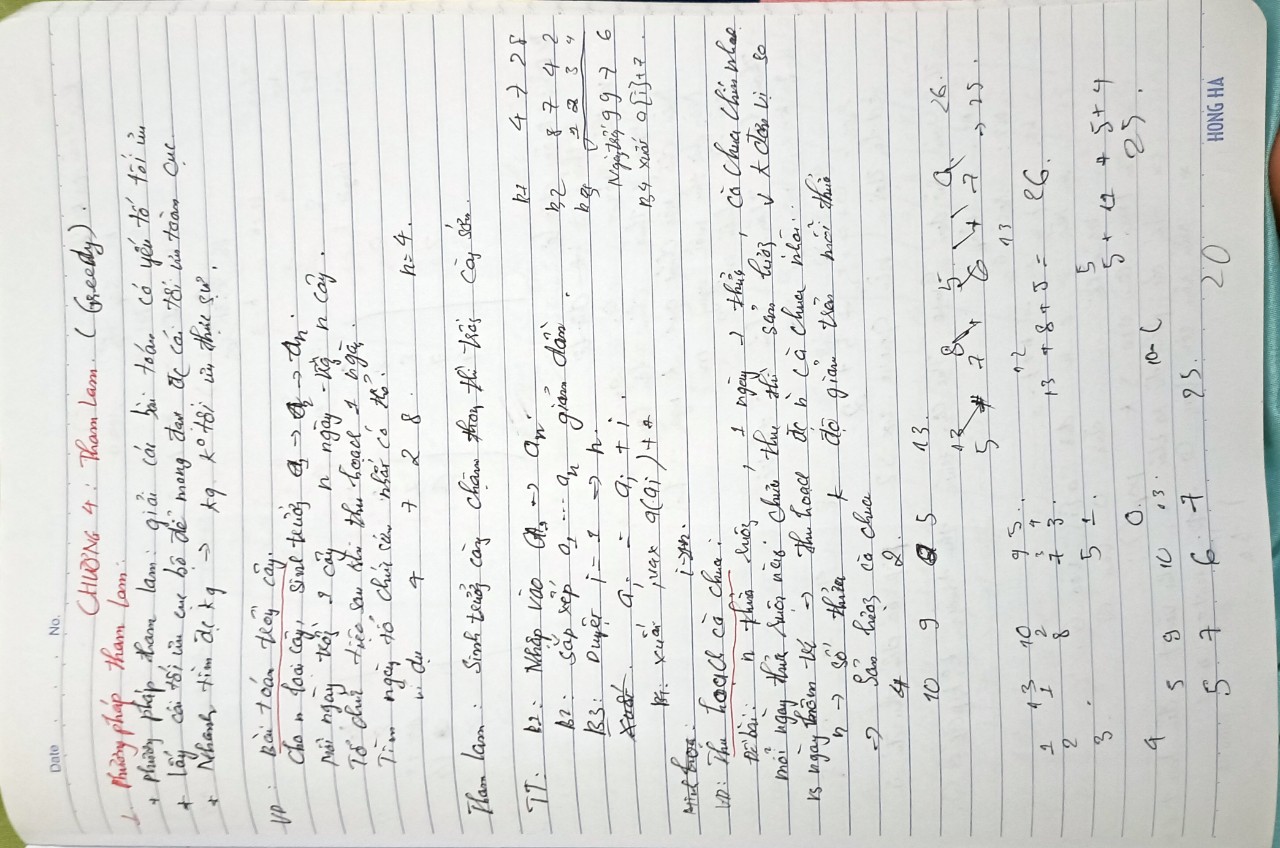 Date No.
CHƯƠNG 4: Tham Lam. (Greedy).
1. Phương pháp tham lam:
+ Phương pháp tham lam: giải các bài toán có yếu tố tối ưu
+ lấy cái tối ưu cục bộ để mong đạt đc cái tối ưu toàn cục.
+ Nhanh tìm đc kq → kq k° tối ưu thực sự.
VD: Bài toán trồng cây.
Cho n loại cây, sinh trưởng a1 → a2 → an.
Mỗi ngày trồng 1 cây n ngày n cây.
Tổ chức tiệc sau khi thu hoạch 1 ngày.
Tìm ngày tổ chức sớm nhất có thể.
ví dụ 4 7 2 8. n=4.
Tham lam: Sinh trưởng càng chậm thì trồng càng sớm.
TT: B1: Nhập vào → an. B1 4 7 2 8
B2: sắp xếp a1 ... an giảm dần. B2 8 7 4 2
B3: Duyệt i = 1 → n. B3 1 2 3 4
ai = ai + i. Ngày trồng 9 9 7 6
B4: xuất max a(ai) + B4 xuất a[i]+
i→n.
VD: Thu hoạch cà chua:
Đề bài: n thửa ruộng, 1 ngày 1 thửa, cà chua chín
mỗi ngày thửa ruộng nào chưa thu thì sản lượng ↓ k đơn vị so
vs ngày → thu hoạch đc n cà chua
n → số thửa k độ giảm trên mỗi thửa
→ Sản lượng cà chua
4 2.
10 9 5 13.
12 8 5 26.
5 + 7 + 6 + 7 → 25.
13 10 9 5 12 13
1 1 2 3 4 13 + 8 + 5 = 26.
2 8 7 3.
3 5 1. 5
5 + 11 + 5 + 4
4 0. 25.
5 9 10 13.
5 7 6 7 25. 20
HONG HA